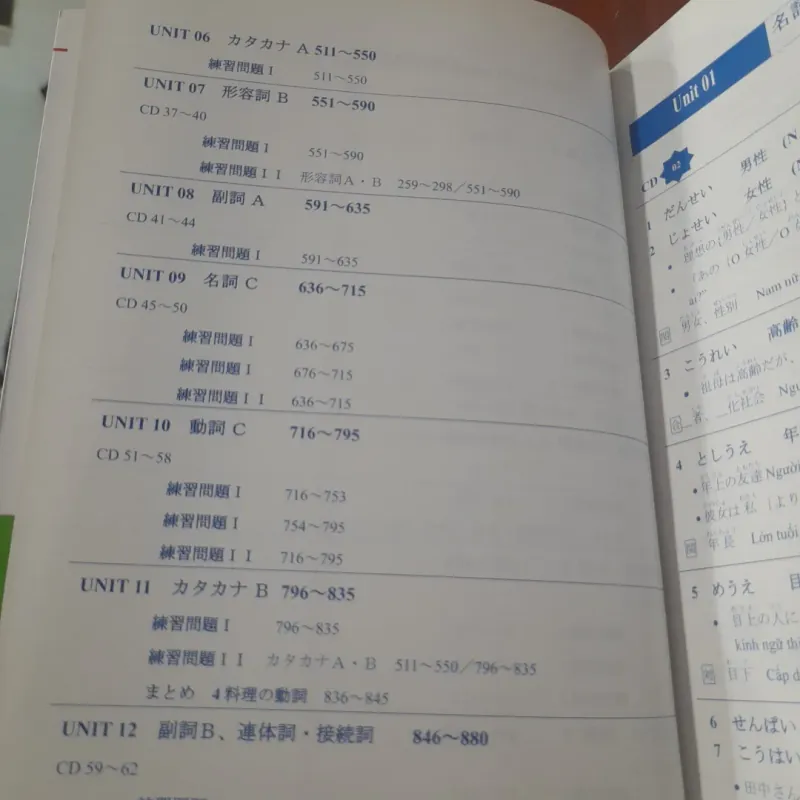 UNIT 06 カタカナ A 511～550
練習問題 I 511～550
UNIT 07 形容詞 B 551～590
CD 37～40
練習問題 I 551～590
練習問題 I I 形容詞A・B 259～298／551～590
UNIT 08 副詞 A 591～635
CD 41～44
練習問題 I 591～635
UNIT 09 名詞 C 636～715
CD 45～50
練習問題 I 636～675
練習問題 I 676～715
練習問題 I I 636～715
UNIT 10 動詞 C 716～795
CD 51～58
練習問題 I 716～753
練習問題 I 754～795
練習問題 I I 716～795
UNIT 11 カタカナ B 796～835
練習問題 I 796～835
練習問題 I I カタカナA・B 511～550／796～835
まとめ 4 料理の動詞 836～845
UNIT 12 副詞B、連体詞・接続詞 846～880
CD 59～62
Unit 01
名詞
CD 02
1 だんせい 男性 (N
2 じょせい 女性 (N
• 理想の{男性／女性}と
• 「あの{O 女性／O 女
男女、性別 Nam nữ
3 こうれい 高齢
• 祖母は高齢だが、
合 _者、_化社会 Ngư
4 としうえ 年
• 年上の友達 Người
• 彼女は私{より
関 年長 Lớn tuổi
5 めうえ 目
• 目上の人に
kính ngữ th
関 目下 Cấp d
6 せんぱい
7 こうはい
• 田中さん